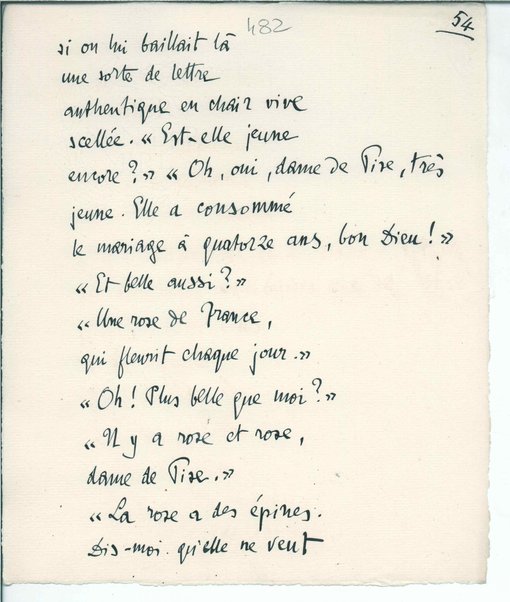 482
54
si on lui baillait là
une sorte de lettre
authentique en chair vive
scellée. « Est-elle jeune
encore ? » « Oh, oui, dame de Pise, très
jeune. Elle a consommé
le mariage à quatorze ans, bon Dieu ! »
« Et belle aussi ? »
« Une rose de France,
qui fleurit chaque jour. »
« Oh ! Plus belle que moi ? »
« Il y a rose et rose,
dame de Pise. »
« La rose a des épines.
Dis-moi qu'elle ne veut